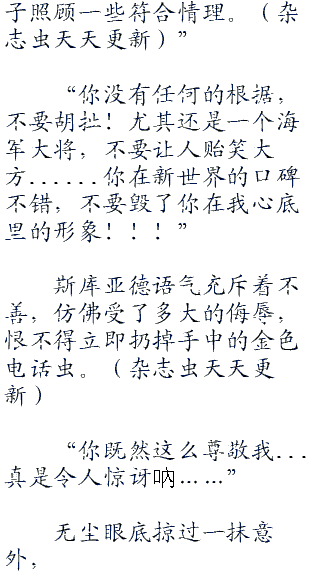 子照顾一些符合情理。（杂
志虫天天更新）”
“你没有任何的根据，
不要胡扯！尤其还是一个海
军大将，不要让人贻笑大
方......你在新世界的口碑
不错，不要毁了你在我心底
里的形象！！！”
斯库亚德语气充斥着不
善，仿佛受了多大的侮辱，
恨不得立即扔掉手中的金色
电话虫。（杂志虫天天更
新）
“你既然这么尊敬我...
真是令人惊讶吶……”
无尘眼底掠过一抹意
外，